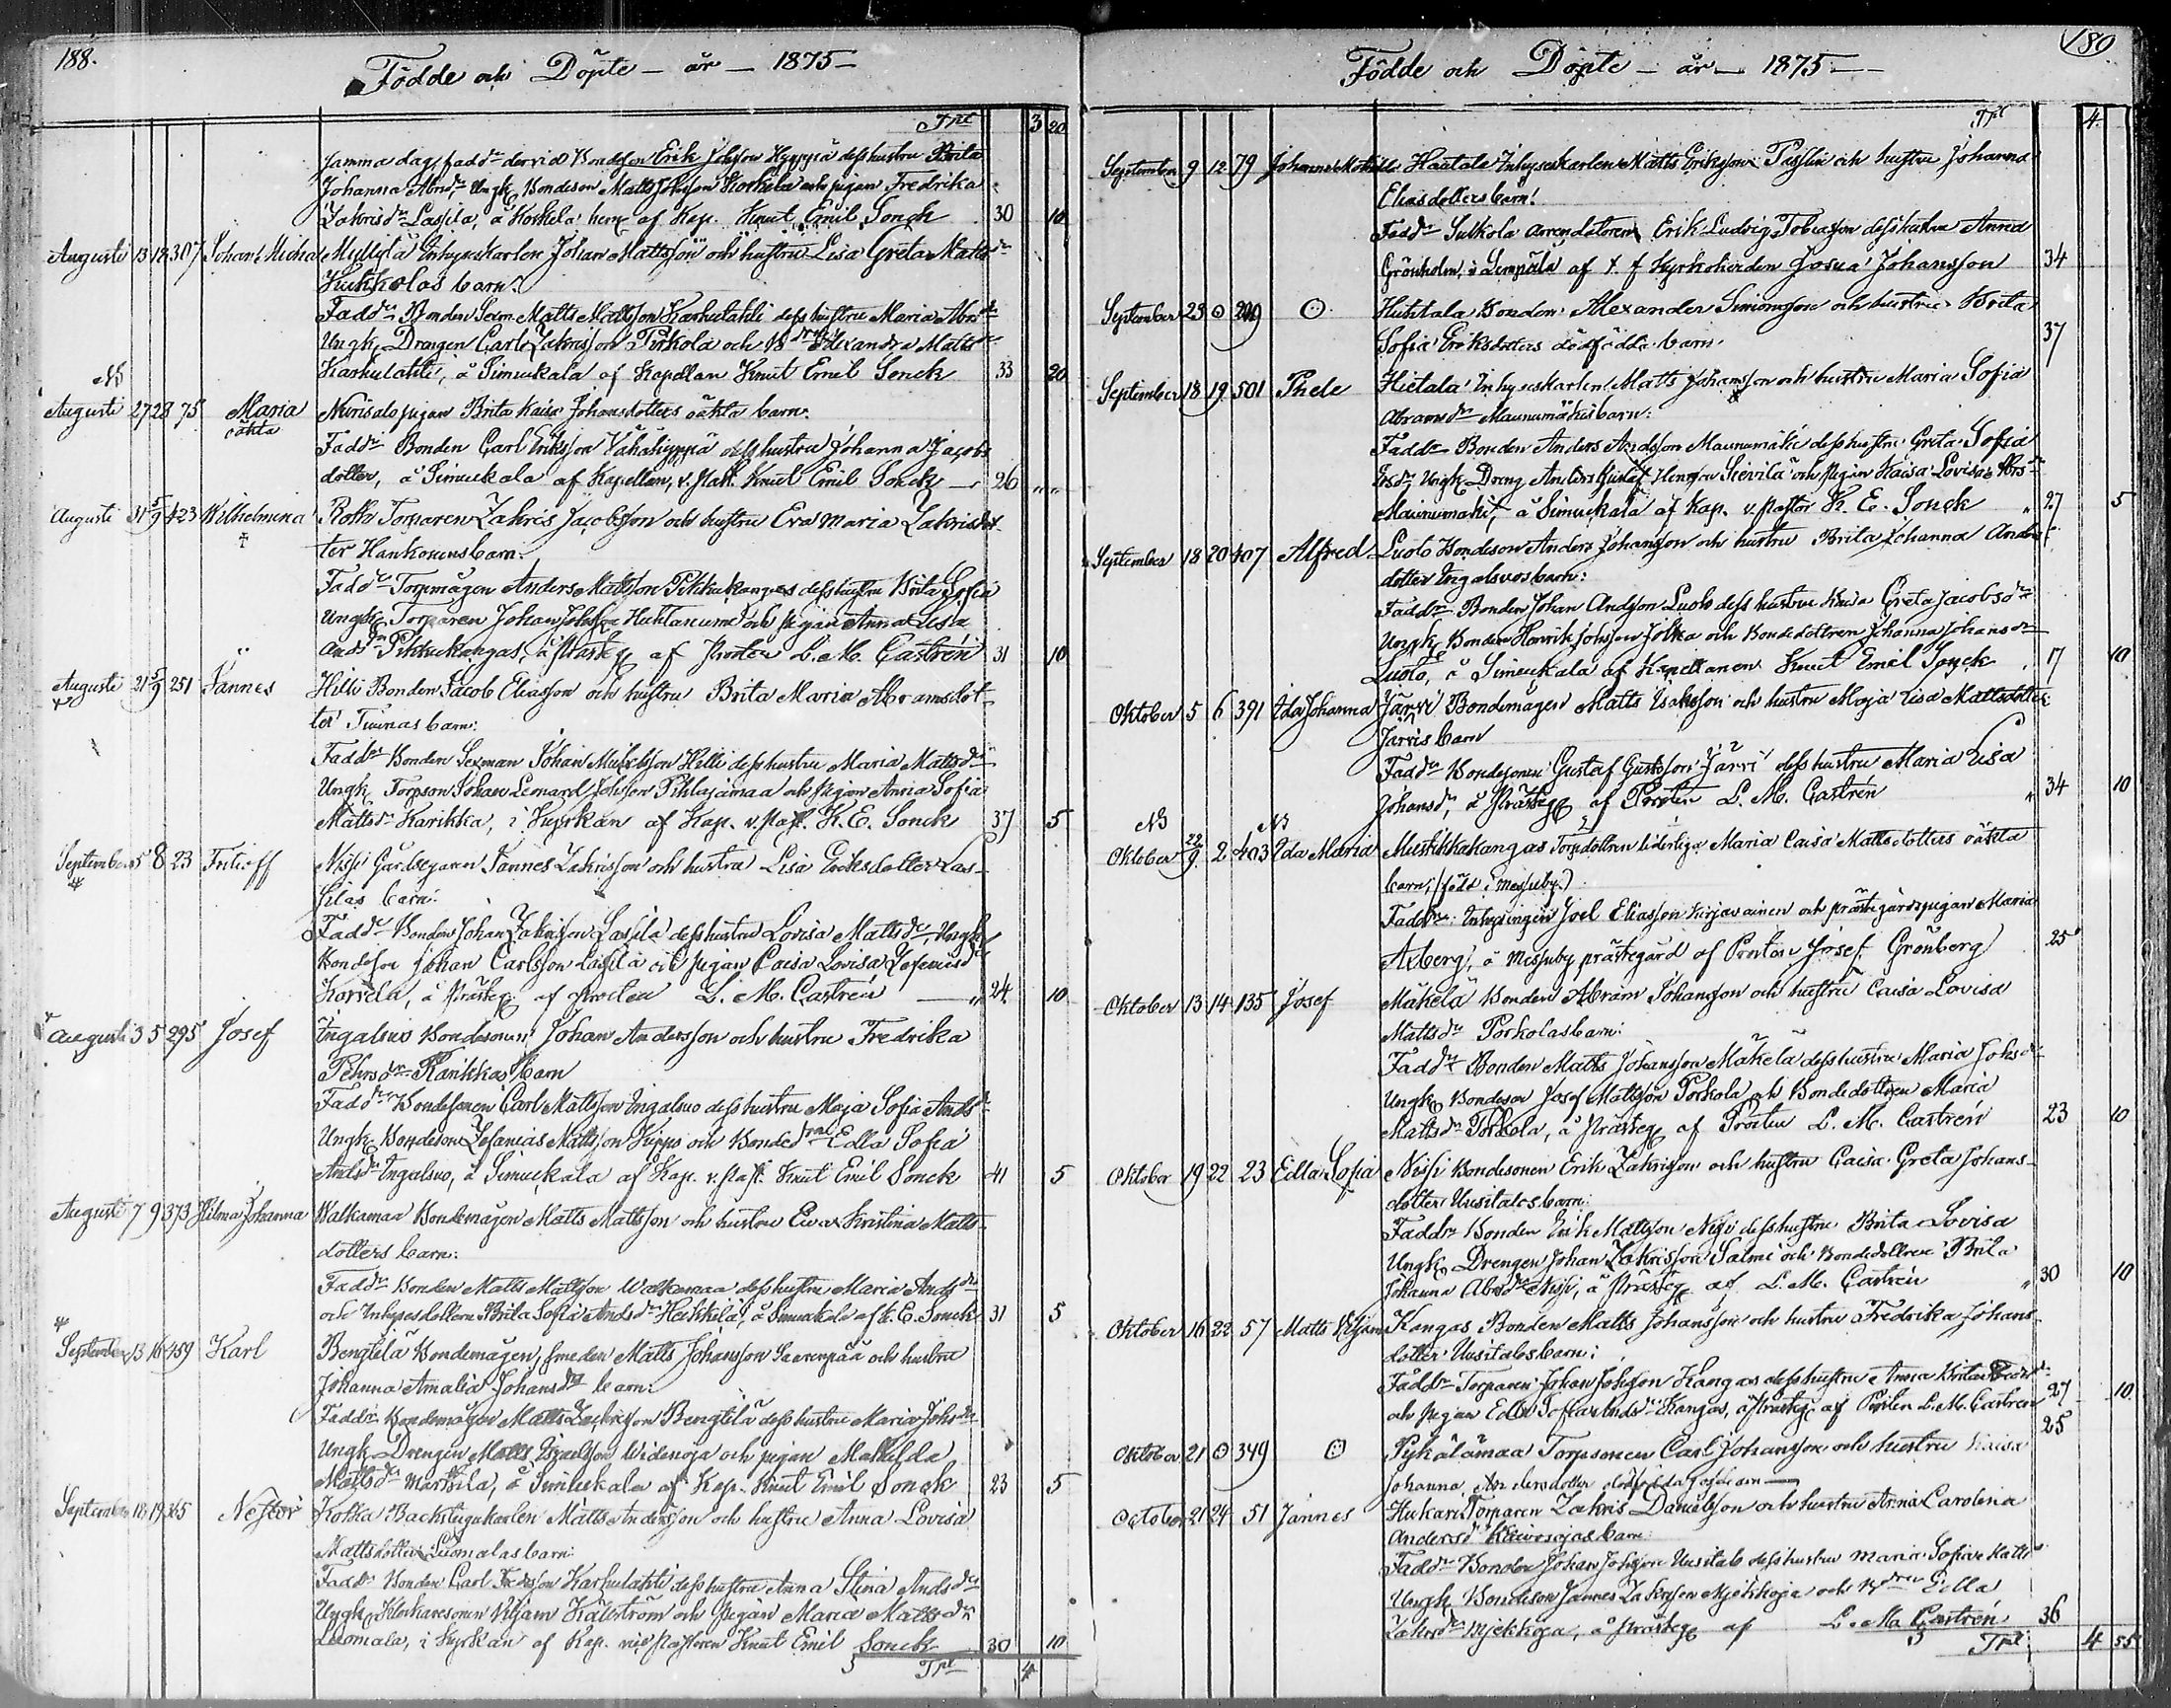 188.
Födde och Döpte - år - 1875 -
Trpt 3 20
Samma dag, fadd:r dervid Bondeson Erik Johsson Hyyppä dess hustru Brita
Johanna Abrsd:r Ungk. Bondeson Matts Johsson Korkela och pigan Fredrika
Zakrisd:r Lassila, å Korkela hem: af Kap. Knut Emil Sonck 30 10
Augusti 13 18 307 Johan Michael Myllylä Inhyseskarlen Johan Mattsson och hustru Lisa Greta Mattsd:r
Kukkolas barn.
Fadd:r Bonden Sexm Matts Mattsson Karhulahti dess hustru Maria Abrsd:r
Ungk. Drengen Carl Zakrisson Pirkola och B:dr Alexandra Mattsd:r
Karhulahti, å Simuckala af Kapellan Knut Emil Sonck 33 20
NB
Augusti 27 28 75 Maria oäkta Nurisalo pigan Brita Kaisa Johansdotters oäkta barn.
Fadd:r Bonden Carl Eriksson Vähähyppä dess hustru Johanna Jacobs
dotter, å Simuckala af Kapellan, v. Past. Knut Emil Sonck 26 " "
Augusti 31 5/9 423 Wilhelmina † Roth Torparen Zakris Jacobsson och hustru Eva Maria Zakrisdot
ter Hankonens barn.
Fadd:r Torpmågen Anders Mattsson Pikkukangas dess hustru Brita Sofia
Ungk. Torparen Johan Johsson Huhtanume och pigan Anna Lisa
Andsd:r Pikkukangas, å Prästeg af Prosten L. M. Castrén 31 10
Augusti 21 5/9 251 Jannes Hilli Bonden Jacob Eliasson och hustru Brita Maria Abramsdot
ter Tuinas barn:
Fadd:r Bonden Sexman Johan Michelsson Hilli dess hustru Maria Mattsd:r
Ungk. Torpson Johan Leonard Johsson Pihlajamaa och pigan Anna Sofia
Mattsd:r Karikka, i Kyrkan af Kap. v. Past. K. E. Sonck 37 5
September 5 8 23 Fritioff Nissi Gårdsegaren Jannes Zakrisson och hustru Lisa Eriksdotter Las-
silas barn:
Fadd:r Bonden Johan Zakrisson Lassila dess hustru Lovisa Mattsd:r, Ungk
Bondeson Johan Carlsson Lassila och pigan Caisa Lovisa Zefaniasd:r
Korsela, å Prästeg. af Prosten L. M. Castrén 24 10
Augusti 3 5 295 Josef Ingalsuo Bondesonen Johan Andersson och hustru Fredrika
Pehrsd:r Rankkas barn
Fadd:r Bondesonen Carl Mattsson Ingalsuo dess hustru Maja Sofia Andsd:r
Ungk. Bondeson Zefanias Mattsson Kippo och Bonded:rn Edla Sofia
Andsd:r Ingalsuo, å Simuckala af Kap. v. Past. Knut Emil Sonck 41 5
Augusti 7 9 373 Hilma Johanna Walkamaa Bondemågen Matts Mattsson och hustru Eva Kristina Matts-
dotters barn:
Fadd:r Bonden Matts Mattsson Walkamaa dess hustru Maria Andsd:r
och Inhysesdottern Brita Sofia Andsd:r Heikkilä, å Simuckala af K. E. Sonck 31 5
September 13 16 459 Karl Bengtilä Bondemågen, smeden Matts Johansson Saarenpää och hustru
Johanna Amalia Johansd:rs barn:
Fadd:r Bondemågen Matts Zachrisson Bengtilä dess hustru Maria Johsd:r
Ungk. Drengen Matts Israelsson Widenoja och pigan Mathilda
Mattsd:r Marttila, å Simuckala af Kap. Knut Emil Sonck 23 5
September 18 19 365 Nestor Kotka Backstugukarlen Matts Andersson och hustru Anna Lovisa
Mattsdotter Luomalas barn:
Fadd:r Bonden Carl Fredsson Karhulahti dess hustru Anna Stina Andsd:r
Ungk. Klockaresonen Viljam Källström och pigan Maria Mattsd:r
Luomala, i Kyrkan af Kap. vice pastoren Knut Emil Sonck 30 10
Trpt 4
189.
Födde och Döpte - år - 1875 -
Trpt 4
September 9 12 79 Johanna Mathilda Haatala Inhyseskarlen Matts Eriksson Passlin och hustru Johanna
Eliasdotters barn:
Fadd:r Sulkola arrendatoren Erik Ludvig Tobiasson dess hustru Anna
Grönholm, i Lempäälä af t. f. Kyrkoherden Josua Johansson 34
September 23 ⊙ 299 ⊙ Huhtala Bonden Alexander Simonsson och hustru Brita
Sofia Eriksdotters dödfödda barn 37
September 18 19 501 Thele Hietala Inhyseskarlen Matts Johansson och hustru Maria Sofia
Abramsd:r Maunumäkis barn:
Fadd:r Bonden Anders Andsson Maunumäki dess hustru Greta Sofia
Ungk Dreng Anders Gustaf Henrsson Sievilä och pigan Kaisa Lovisa Abrsd:r
Maunumäki, å Simuckala af Kap. v. Pastor K. E. Sonck 27 5
September 18 20 407 Alfred Luoto Bondeson Anders Johansson och hustru Brita Johanna Anders
dotter Ingalsuos barn:
Fadd:r Bonden Johan Andsson Luoto dess hustru Kaisa Greta Jacobsd:r
Ungk. Bonden Henrik Johsson Jolka och Bondedottren Johanna Johansd:r
Luoto, å Simuckala af Kapellanen Knut Emil Sonck 17 10
Oktober 5 6 391 Ida Johanna Järvi Bondemågen Matts Isaksson och hustru Maja Lisa Mattsdotter
Järvis barn
Fadd:r Bondesonen Gustaf Gustsson Järvi dess hustru Maria Lisa
Johansd:r, å Prästeg af Prosten L. M. Castrén 34 10
NB NB
Oktober 22/9 2 403 Ida Maria Mustikkakangas Torpdottren liderliga Maria Caisa Mattsdotters oäkta
barn, (född i Messuby.)
Fadd:r: Inhysingen Joel Eliasson Kirjavainen och prästegårdspigan Maria
Axberg, å Messuby prästegård af Prosten Josef Grönberg 25
Oktober 13 14 135 Josef Mäkelä Bonden Abram Johansson och hustru Caisa Lovisa
Mattsd:r Porkolas barn:
Fadd:r Bonden Matts Johansson Mäkelä dess hustru Maria Johsd:r
Ungk. Bondeson Josef Mattsson Porkola och Bondedottren Maria
Mattsd:r Porkola, å Prästeg af Prosten L. M. Castrén 23 10
Oktober 19 22 23 Edla Sofia Nissi Bondesonen Erik Zakrisson och hustru Caisa Greta Johans-
dotter Uusitalos barn:
Fadd:r Bonden Erik Mattsson Nissi dess hustru Brita Lovisa
Ungk. Drengen Johan Zakrisson Salmi och Bondedottren Brita
Johanna Abrsd:r Nissi, å Prästeg af L. M. Castrén 30 10
Oktober 16 22 57 Matts Viljam Kangas Bonden Matts Johansson och hustru Fredrika Johans
dotter Uusitalos barn:
Fadd:r Torparen Johan Johsson Kangas dess hustru Anna Brita
och pigan Edla Sofia Andsd:r Kangas, å Prästeg af Prosten L. M. Castrén 27 10
Oktober 21 ⊙ 349 ⊙ Pykälämaa Torpsonen Carl Johansson och hustru Kaisa 25
Johanna Andersdotter dödfödda gossebarn
October 21 24 51 Jannes Hukari Torparen Zakris Danielsson och hustru Anna Carolina
Andersd:r Kaivosojas barn:
Fadd:r Bonden Johan Johsson Uusitalo dess hustru Maria Sofia Mattsd:r
Ungk Bondeson Jannes Zakrsson Myökkoja och B:dren Edla
Zakrsd:r Mjekkoja, å Prästeg af L. M. Castrén 36
Trpt 4 55